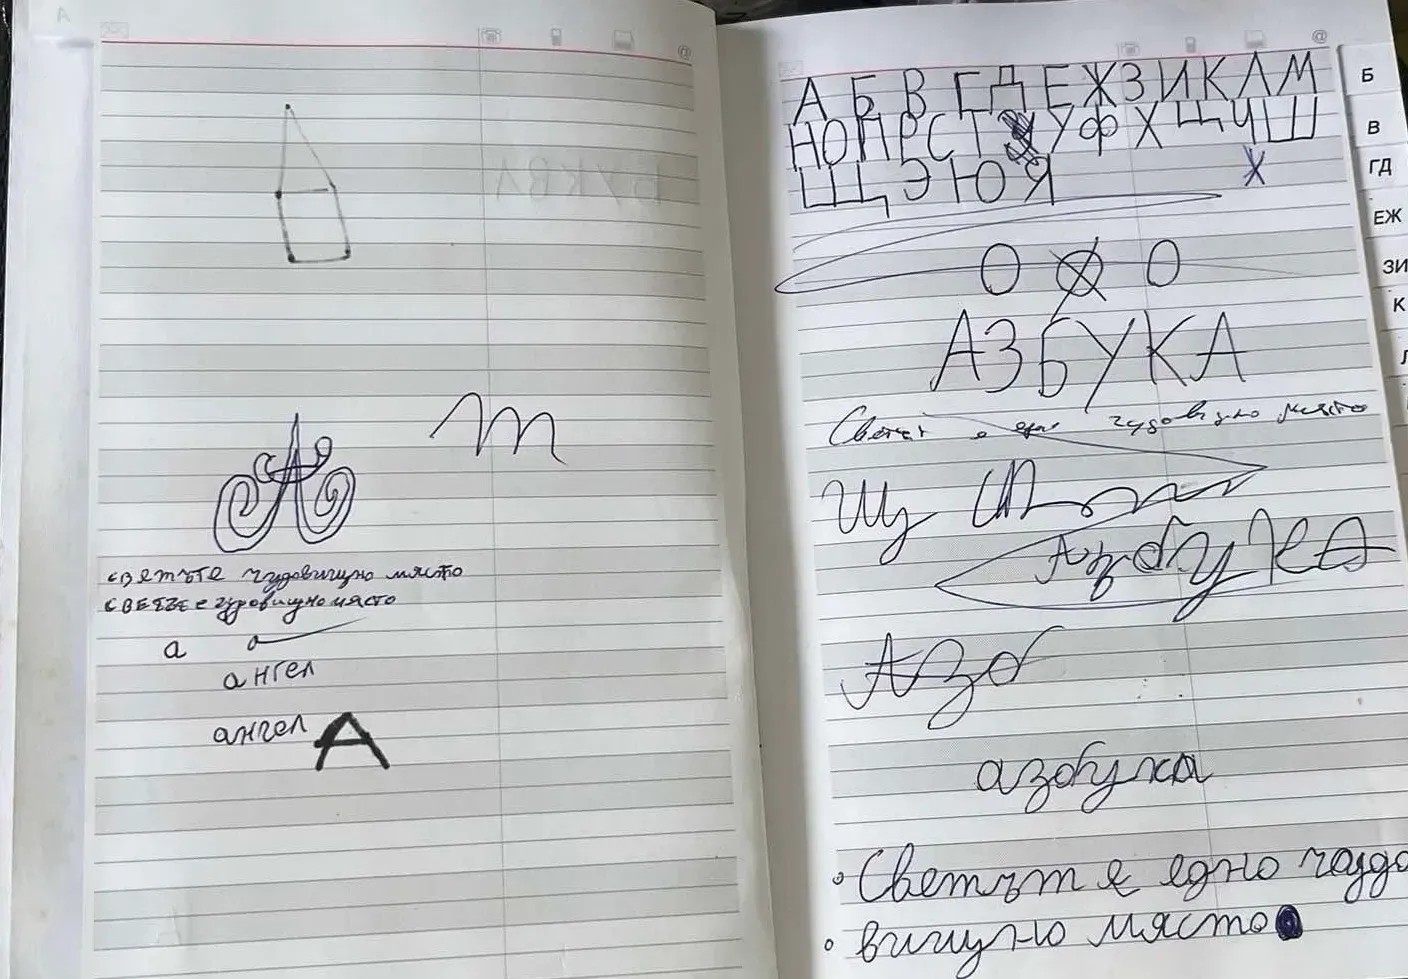 m
А
светъте чудовищно място
СВЕТЪТ е чудовищно място
а а
ангел
ангел А
А Б В Г Д Е Ж З И К Л М
Н О П Р С Т У Ф Х Ц Ч Ш
Щ Э Ю Я Х
О О О
АЗБУКА
Светът е едно чудовищно място
Щ
Азбука
Азб
азбука
Светът е едно чудо
вищно място
Б
В
ГД
ЕЖ
ЗИ
К
Л